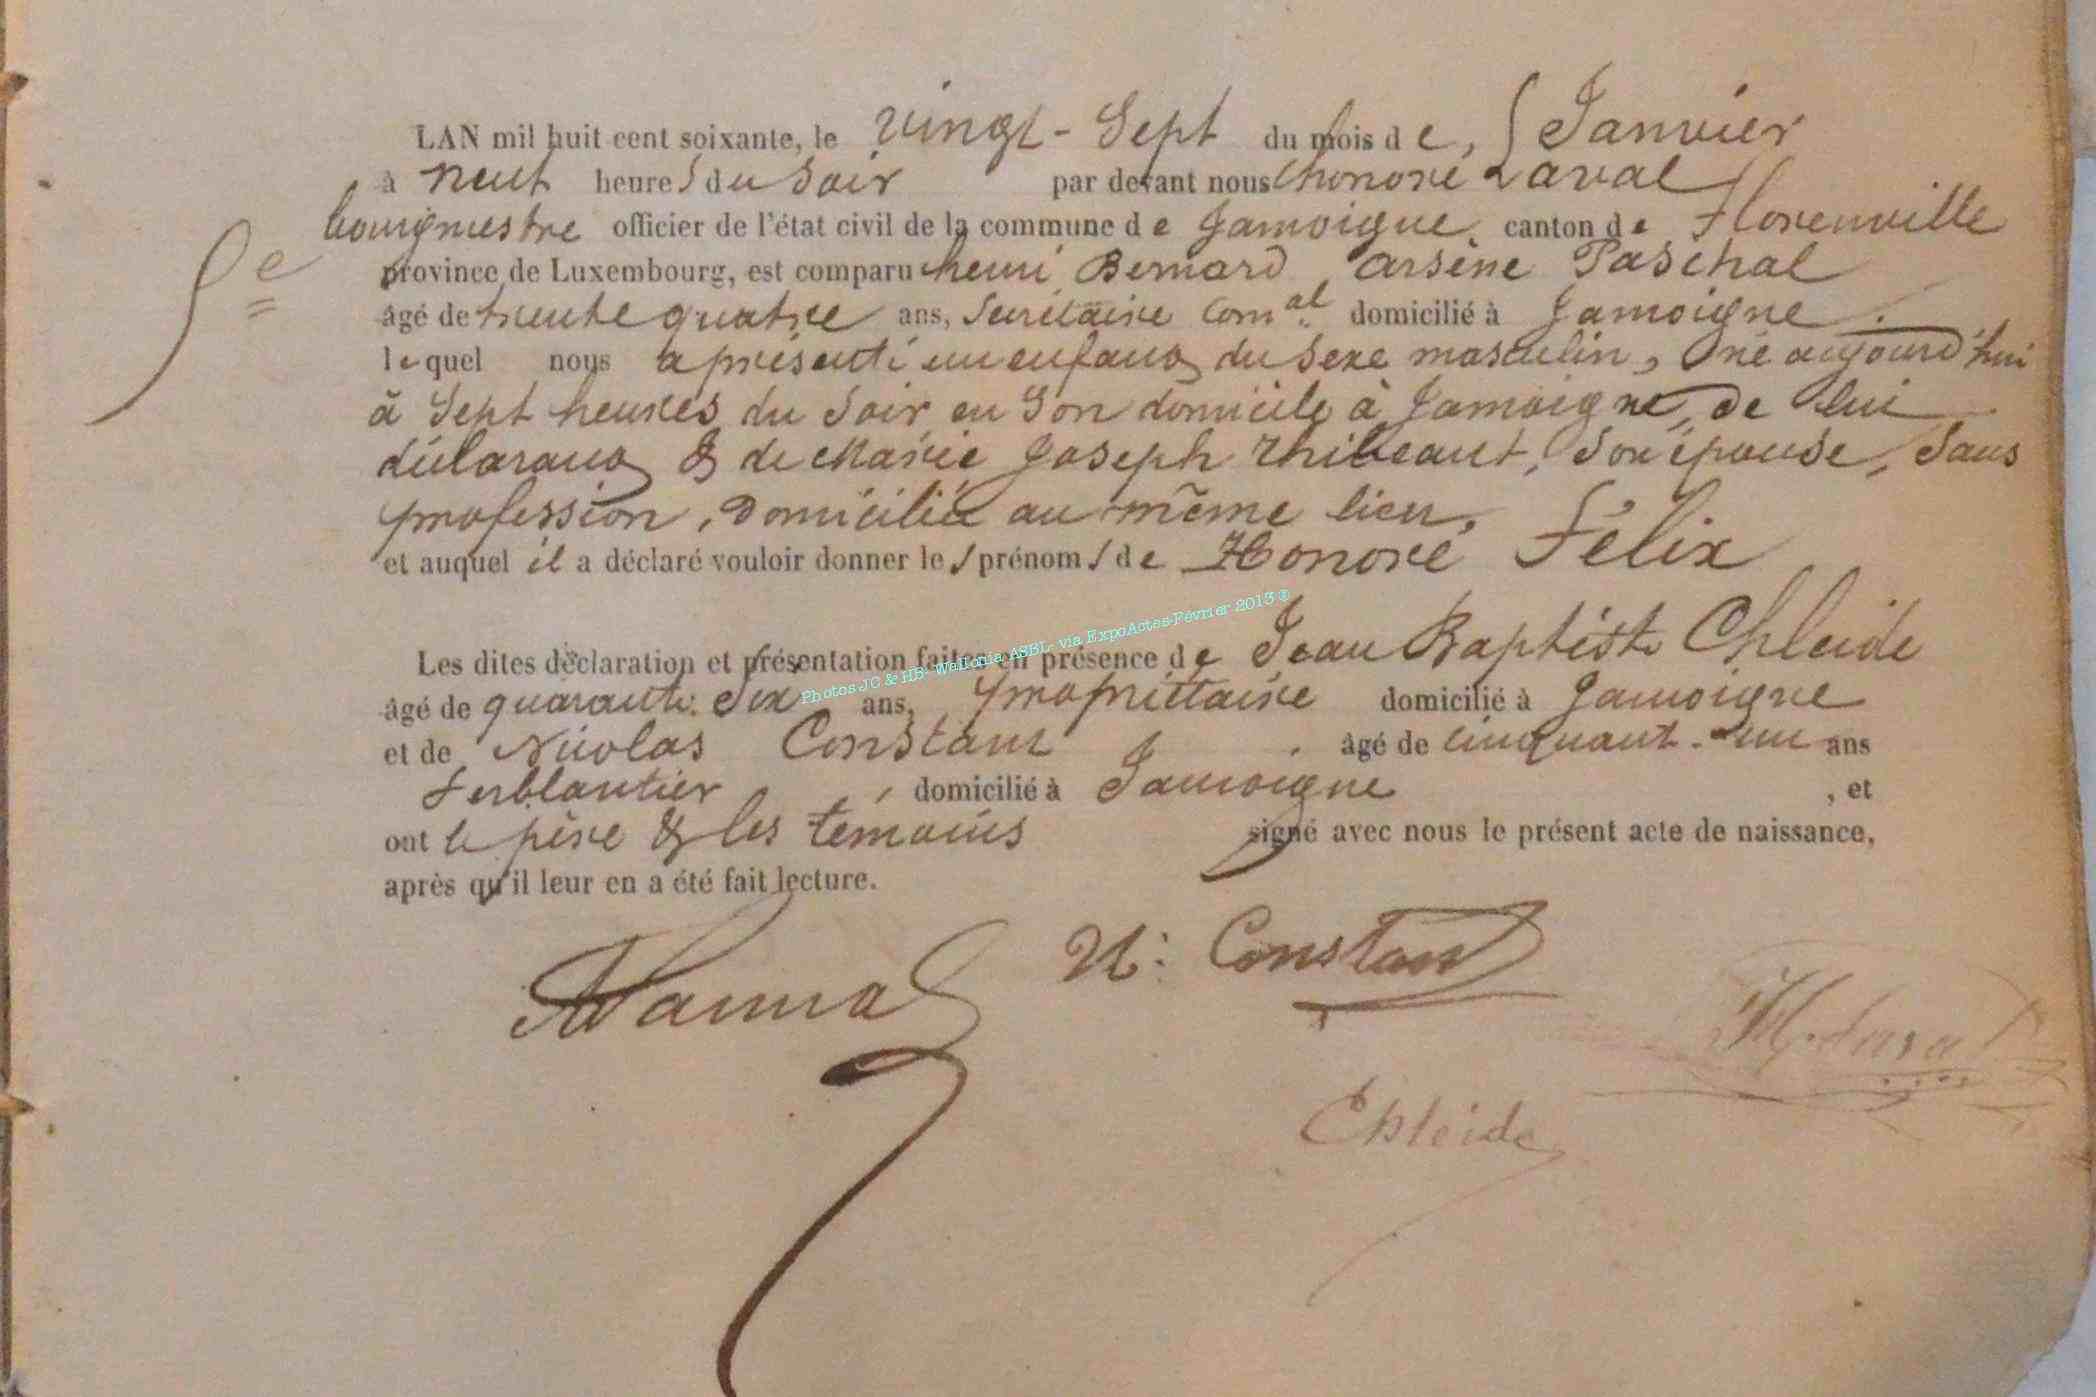 LAN mil huit cent soixante, le vingt-Sept du mois de, Janvier
à neuf heures du Soir par devant nous honoré Laval
bourgmestre officier de l'état civil de la commune de Jamoigne, canton de Florenville
5e
province de Luxembourg, est comparu henri Bernard Arsène Paschal
âgé de trente quatre ans, Secrétaire Comal domicilié à Jamoigne.
lequel nous a présenté un enfant du Sexe masculin, né aujourd'hui
à Sept heures du Soir en Son domicile à Jamoigne, de lui
déclarant & de Marie Joseph Thibeaut, Son épouse, Sans
profession, domiciliée au même lieu,
et auquel il a déclaré vouloir donner les prénoms de Honoré Félix
Les dites déclaration et présentation faites en présence de Jean Baptiste Chleide
Photos JC & HB- Wallonia ASBL- via ExpoActes-Février 2013 ®
âgé de quarante. Six ans, propriétaire domicilié à Jamoigne
et de Nicolas Constant âgé de cinquant-un ans
Ferblantier, domicilié à Jamoigne, et
ont le père & les témoins signé avec nous le présent acte de naissance,
après qu'il leur en a été fait lecture.
N: Constant
H. Laval
Chleide